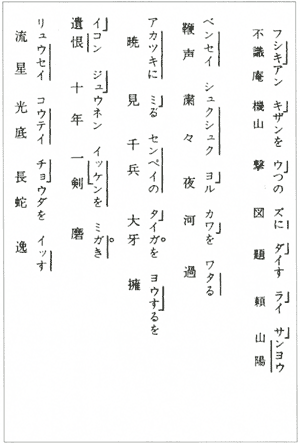 フシキアン キザンを ウつの ズに ダイす ライ サンヨウ
不識庵 機山 撃 図 題 頼 山陽
ベンセイ シュクシュク ヨル カワを ワタる
鞭声 粛々 夜 河 過
アカツキに ミる センペイの タイガを ヨウするを
暁 見 千兵 大牙 擁
イコン ジュウネン イッケンを ミガき
遺恨 十年 一剣 磨
リュウセイ コウテイ チョウダを イッす
流星 光底 長蛇 逸